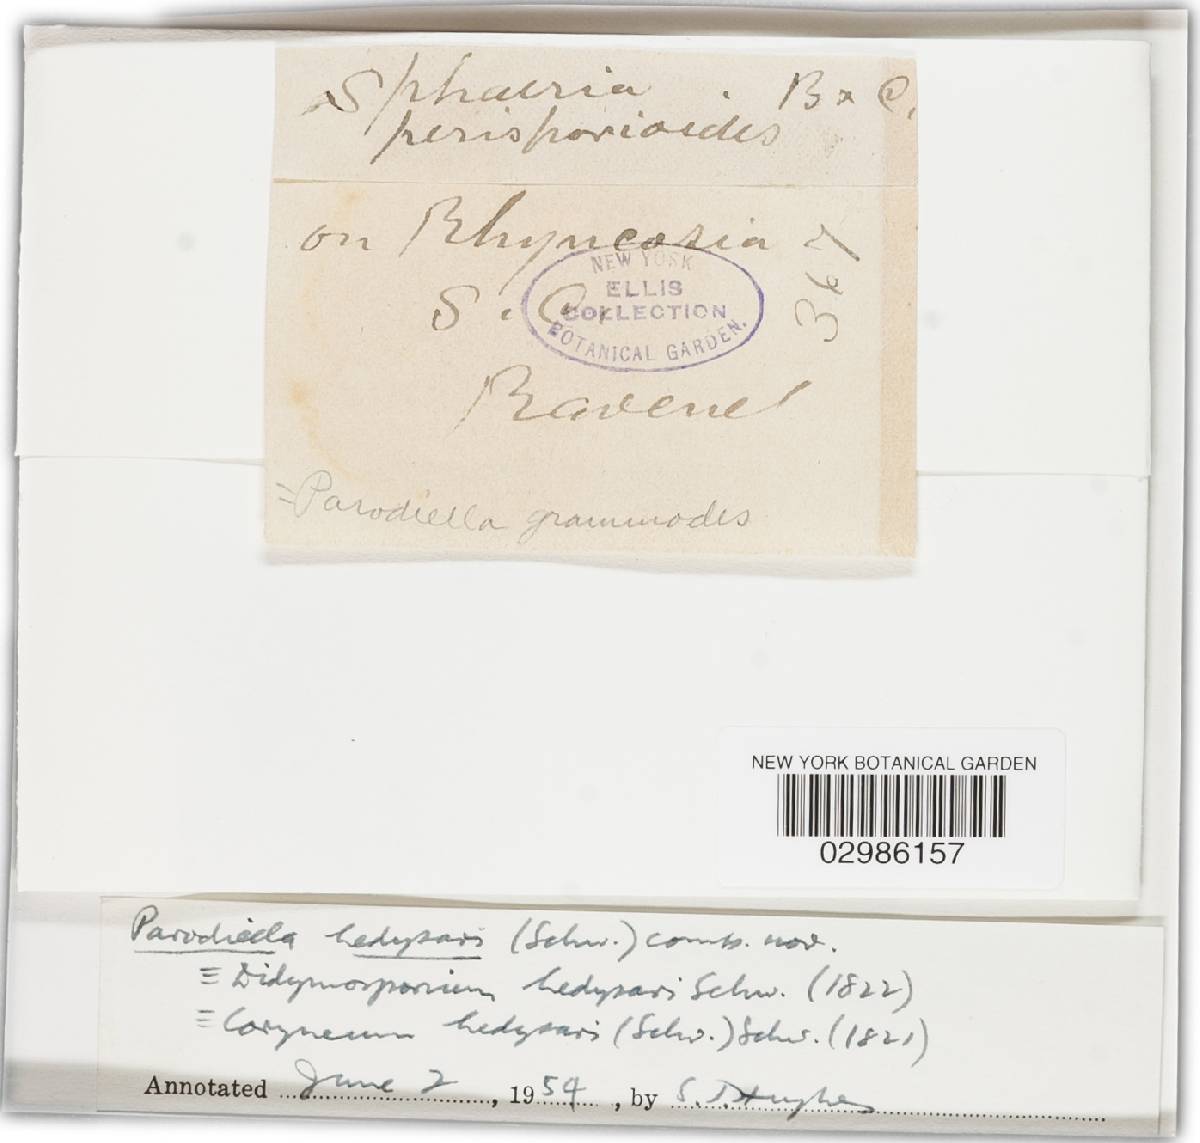 Sphaeria . B & C.
perisporioides
on Rhyncosia
S. C.
367
NEW YORK
ELLIS
COLLECTION
BOTANICAL GARDEN.
Ravenel
= Parodiella grammodes
NEW YORK BOTANICAL GARDEN
02986157
Parodiella hedysari (Schw.) comb. nov.
≡ Didymosporium hedysari Schw. (1822)
≡ Coryneum hedysari (Schw.) Schw. (1821)
Annotated June 2, 1954, by S. J. Hughes